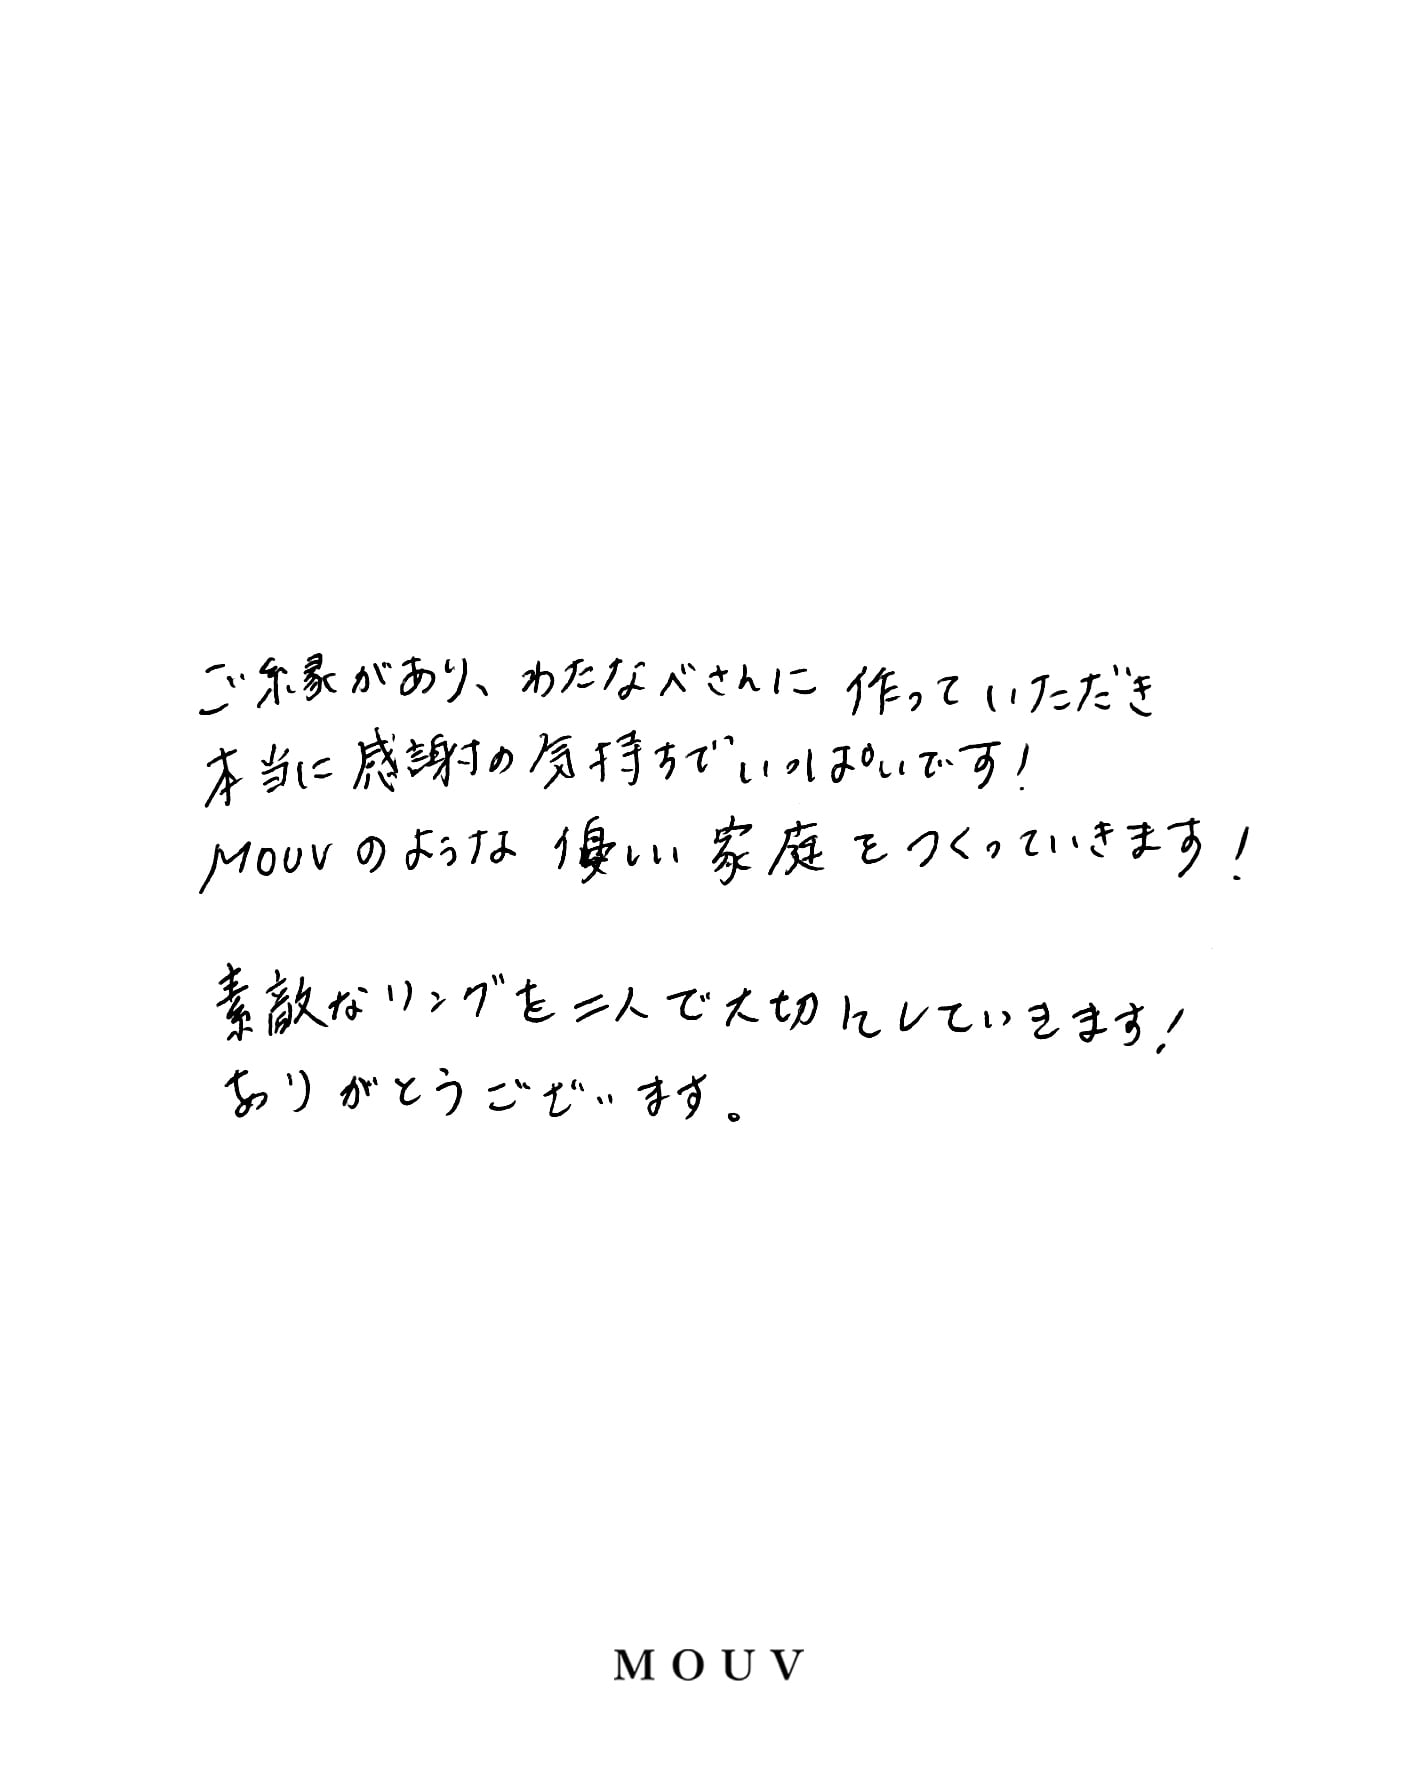 ご縁があり、わたなべさんに作っていただき
本当に感謝の気持ちでいっぱいです！
MOUVのような優しい家庭をつくっていきます！
素敵なリングを二人で大切にしていきます！
ありがとうございます。
MOUV